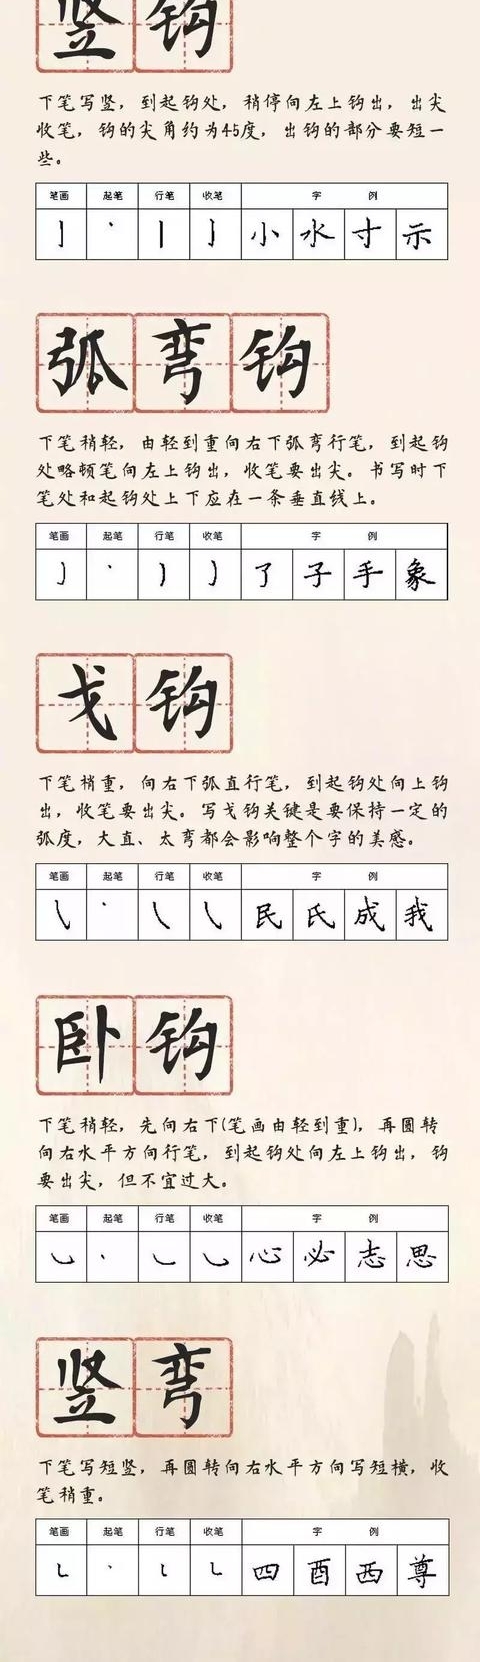 竖钩
下笔写竖，到起钩处，稍停向左上钩出，出尖
收笔，钩的尖角约为45度，出钩的部分要短一
些。
笔画 起笔 行笔 收笔 字 例
亅 丶 丨 亅 小 水 寸 示
弧弯钩
下笔稍轻，由轻到重向右下弧弯行笔，到起钩
处略顿笔向左上钩出，收笔要出尖。书写时下
笔处和起钩处上下应在一条垂直线上。
笔画 起笔 行笔 收笔 字 例
了 子 手 象
戈钩
下笔稍重，向右下弧直行笔，到起钩处向上钩
出，收笔要出尖。写戈钩关键是要保持一定的
弧度，大直、太弯都会影响整个字的美感。
笔画 起笔 行笔 收笔 字 例
民 氏 成 我
卧钩
下笔稍轻，先向右下(笔画由轻到重)，再圆转
向右水平方向行笔，到起钩处向左上钩出，钩
要出尖，但不宜过大。
笔画 起笔 行笔 收笔 字 例
心 必 志 思
竖弯
下笔写短竖，再圆转向右水平方向写短横，收
笔稍重。
笔画 起笔 行笔 收笔 字 例
四 酉 西 尊